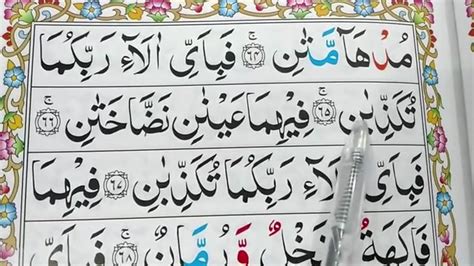 مُدْهَآمَّتٰنِ ۚ ﴿٦٤﴾ فَبِاَىِّ اٰلَآءِ رَبِّكُمَا
تُكَذِّبٰنِ ۚ ﴿٦٥﴾ فِيْهِمَا عَيْنٰنِ نَضَّاخَتٰنِ ۚ ﴿٦٦﴾
فَبِاَىِّ اٰلَآءِ رَبِّكُمَا تُكَذِّبٰنِ ﴿٦٧﴾ فِيْهِمَا
فَاكِهَةٌ وَّنَخْلٌ وَّرُمَّانٌ ۚ ﴿٦٨﴾ فَبِاَىِّ